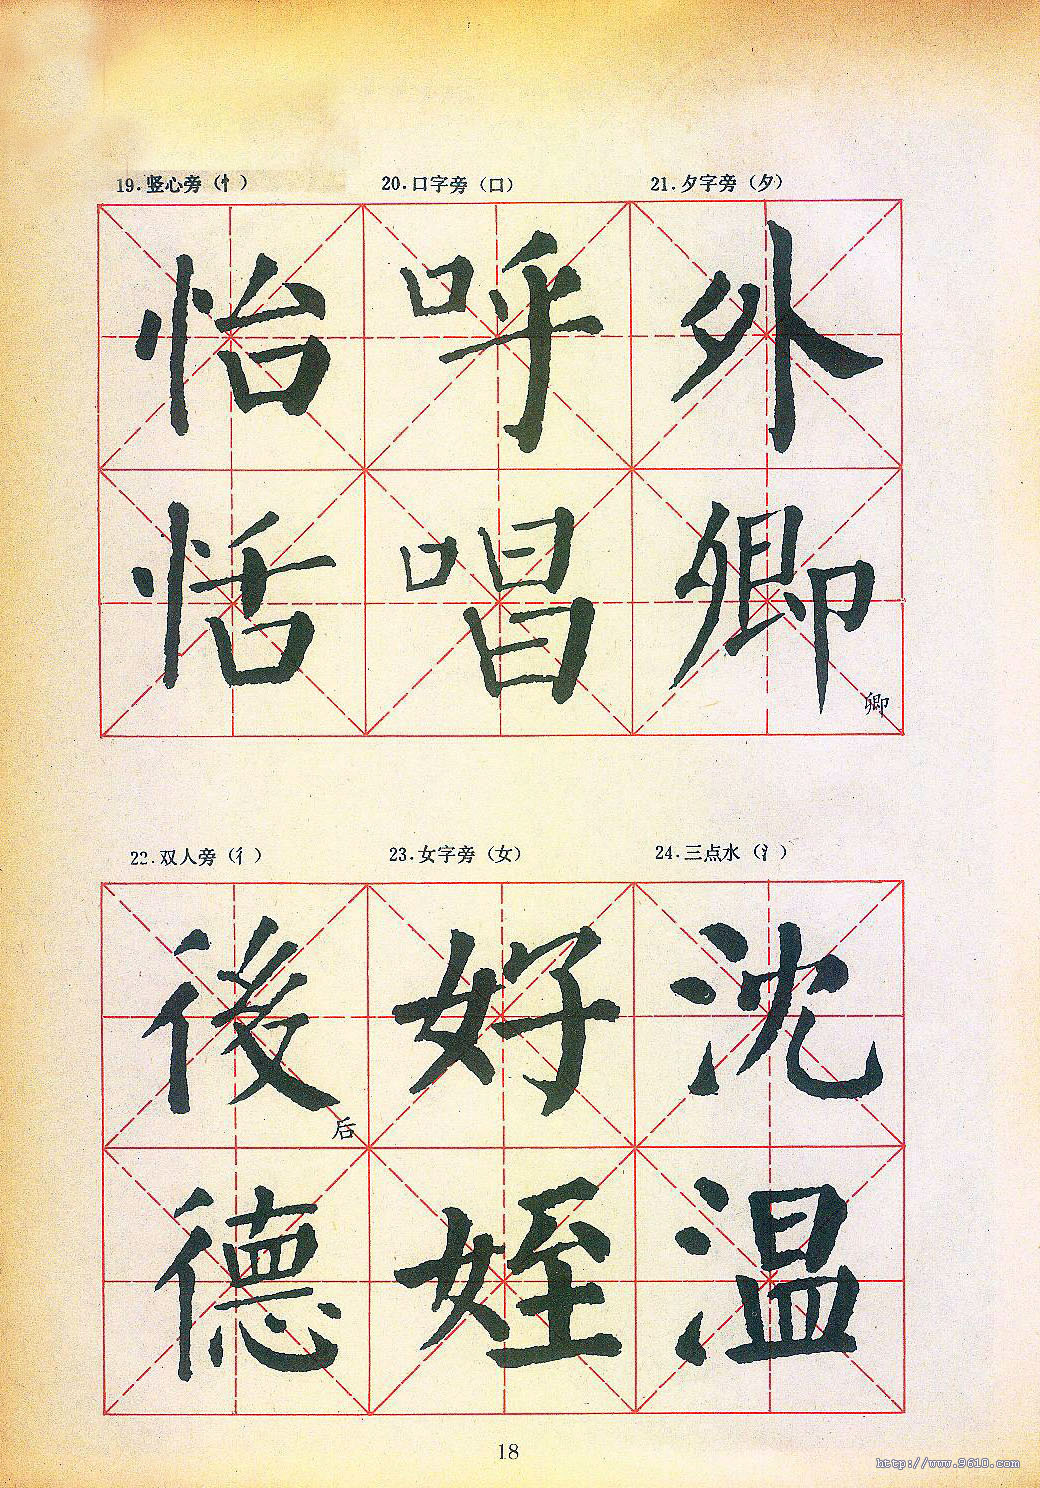 19.竖心旁（忄） 20.口字旁（口） 21.夕字旁（夕）
怡 呼 外
恬 唱 卿
卿
22.双人旁（彳） 23.女字旁（女） 24.三点水（氵）
後 好 沈
后
德 姪 温
18
http://www.9610.com